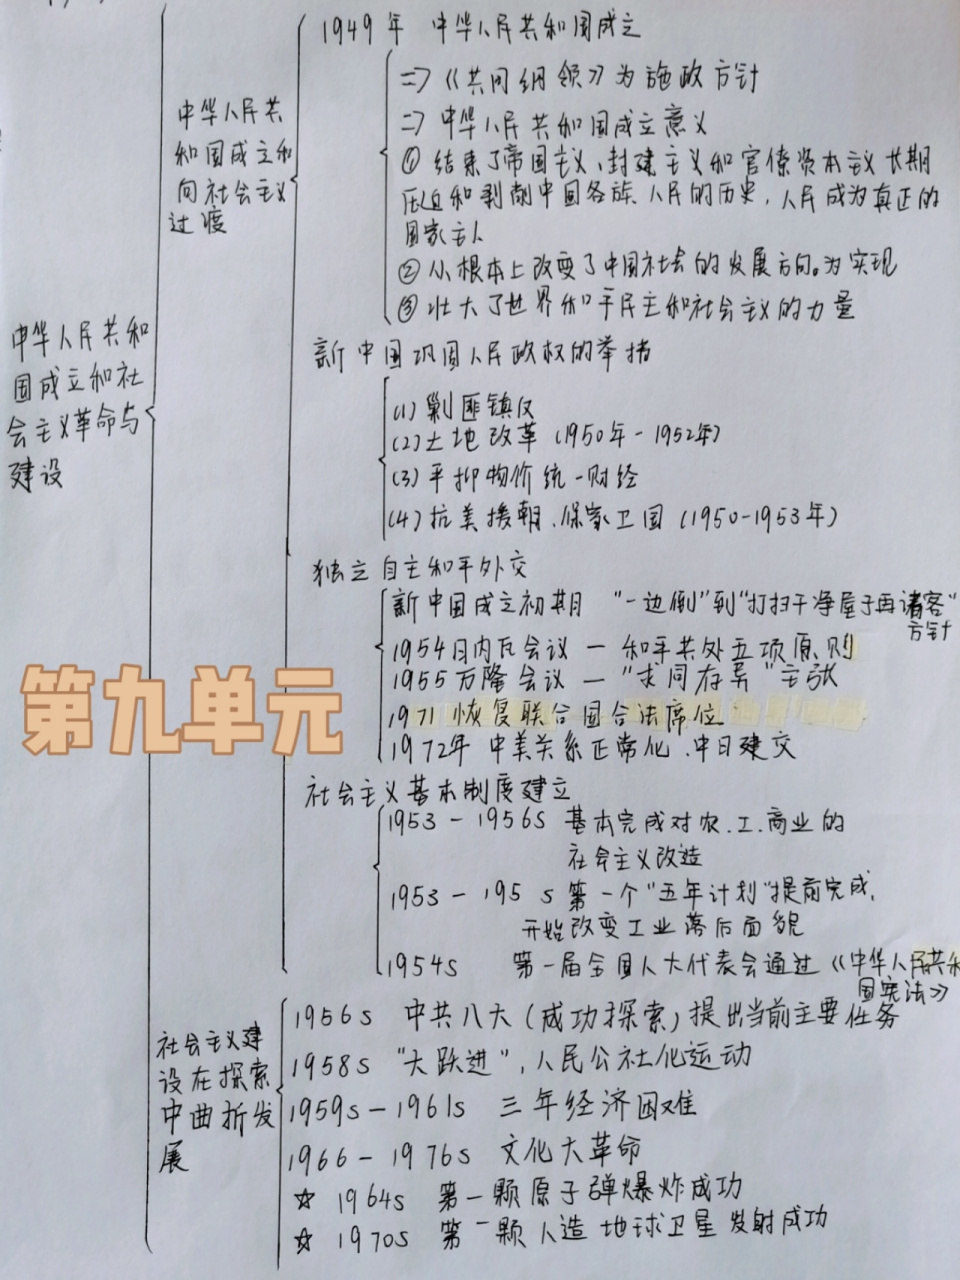 中华人民共和
国成立和社
会主义革命与
建设
中华人民共
和国成立和
向社会主义
过渡
1949年 中华人民共和国成立
=>《共同纲领》为施政方针
=> 中华人民共和国成立意义
① 结束了帝国主义、封建主义和官僚资本主义长期
压迫和剥削中国各族人民的历史，人民成为真正的
国家主人
② 从根本上改变了中国社会的发展方向。为实现
③ 壮大了世界和平民主和社会主义的力量
新中国巩固人民政权的举措
(1) 剿匪镇反
(2) 土地改革 (1950年-1952年)
(3) 平抑物价统一财经
(4) 抗美援朝、保家卫国 (1950-1953年)
独立自主和平外交
新中国成立初期 "一边倒"到"打扫干净屋子再请客"
方针
1954日内瓦会议 — 和平共处五项原则
1955万隆会议 — "求同存异"主张
1971 恢复联合国合法席位
1972年 中美关系正常化、中日建交
第九单元
社会主义基本制度建立
1953-1956s 基本完成对农.工.商业的
社会主义改造
1953-195 s 第一个"五年计划"提前完成,
开始改变工业落后面貌
1954s 第一届全国人大代表会通过《中华人民共和
国宪法》
社会主义建
设在探索
中曲折发
展
1956s 中共八大(成功探索)提出当前主要任务
1958s "大跃进",人民公社化运动
1959s-1961s 三年经济困难
1966-1976s 文化大革命
☆ 1964s 第一颗原子弹爆炸成功
☆ 1970s 第一颗人造地球卫星发射成功